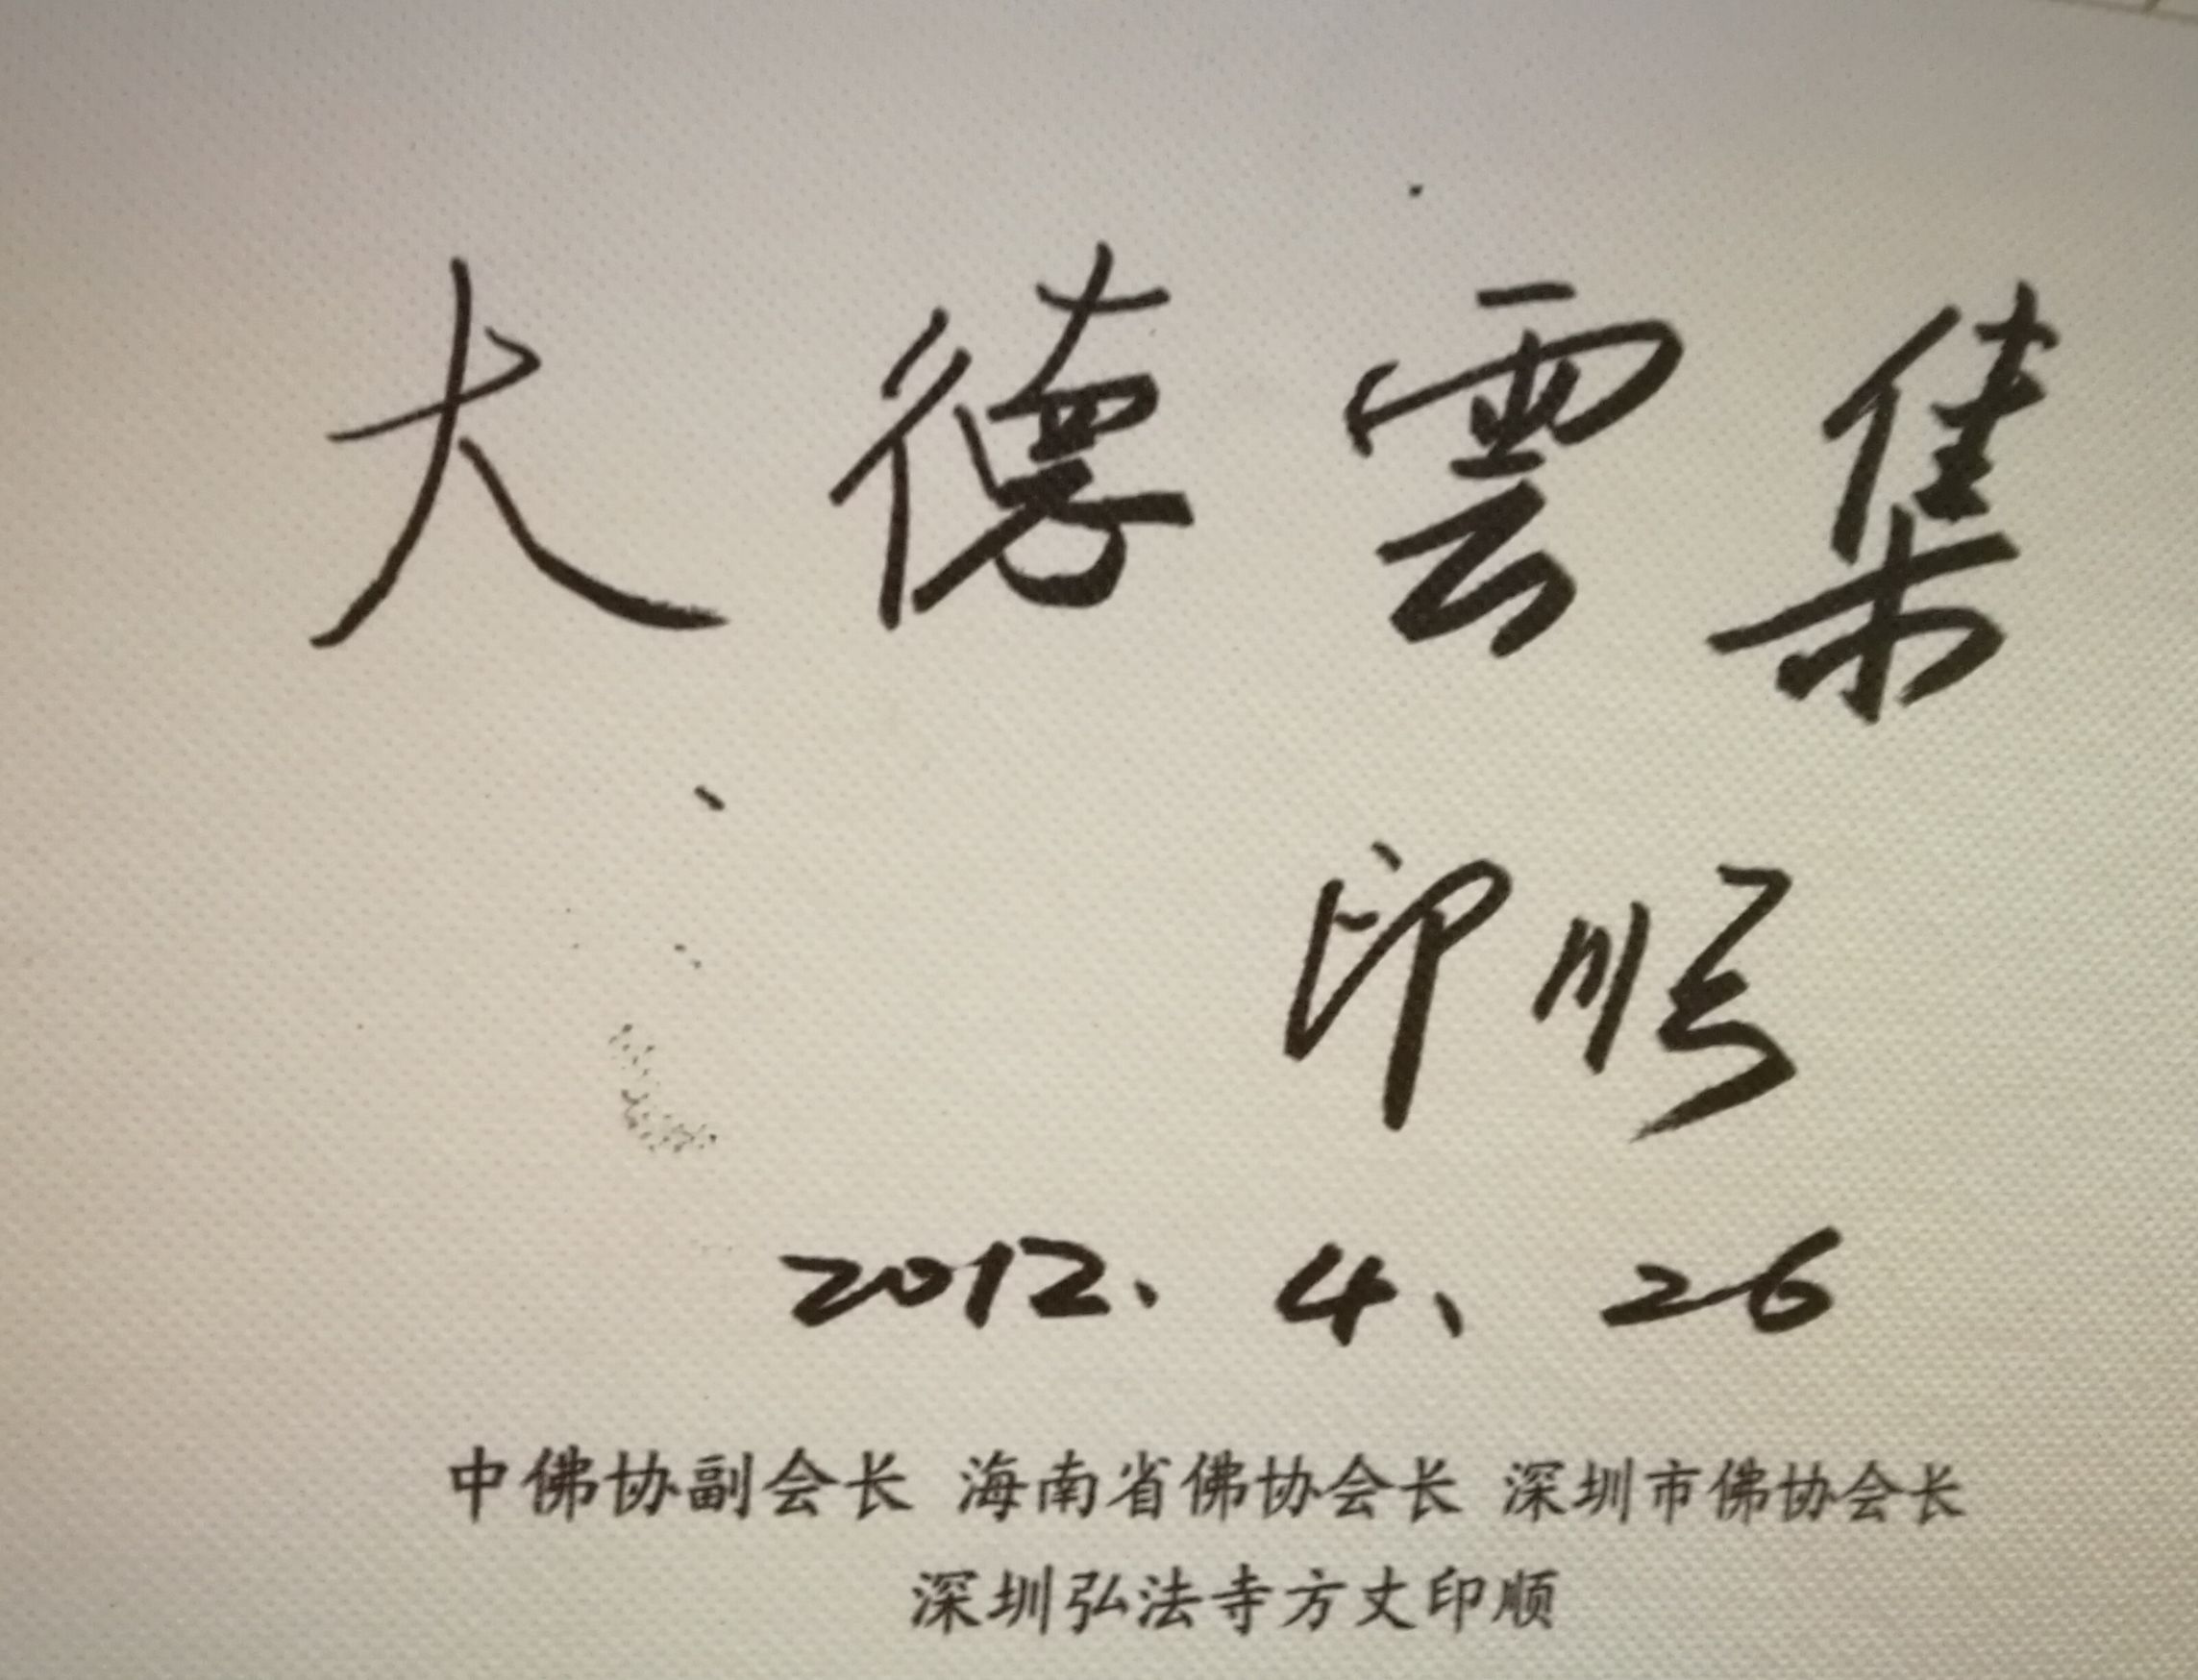 大德雲集
印顺
2012、4、26
中佛协副会长 海南省佛协会长 深圳市佛协会长
深圳弘法寺方丈印顺